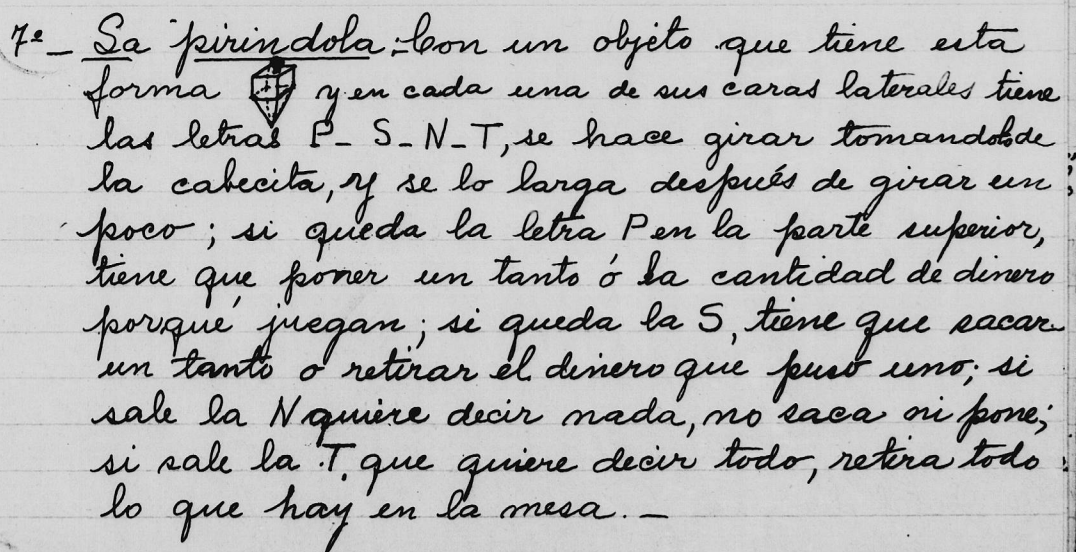 7º_ La pirindola:-Con un objeto que tiene esta
forma y en cada una de sus caras laterales tiene
las letras P_ S_ N_ T, se hace girar tomandolo de
la cabecita, y se lo larga después de girar un
poco; si queda la letra P en la parte superior,
tiene que poner un tanto ó la cantidad de dinero
porqué juegan; si queda la S, tiene que sacar
un tanto o retirar el dinero que puso uno; si
sale la N quiere decir nada, no saca ni pone;
si sale la T, que quiere decir todo, retira todo
lo que hay en la mesa._